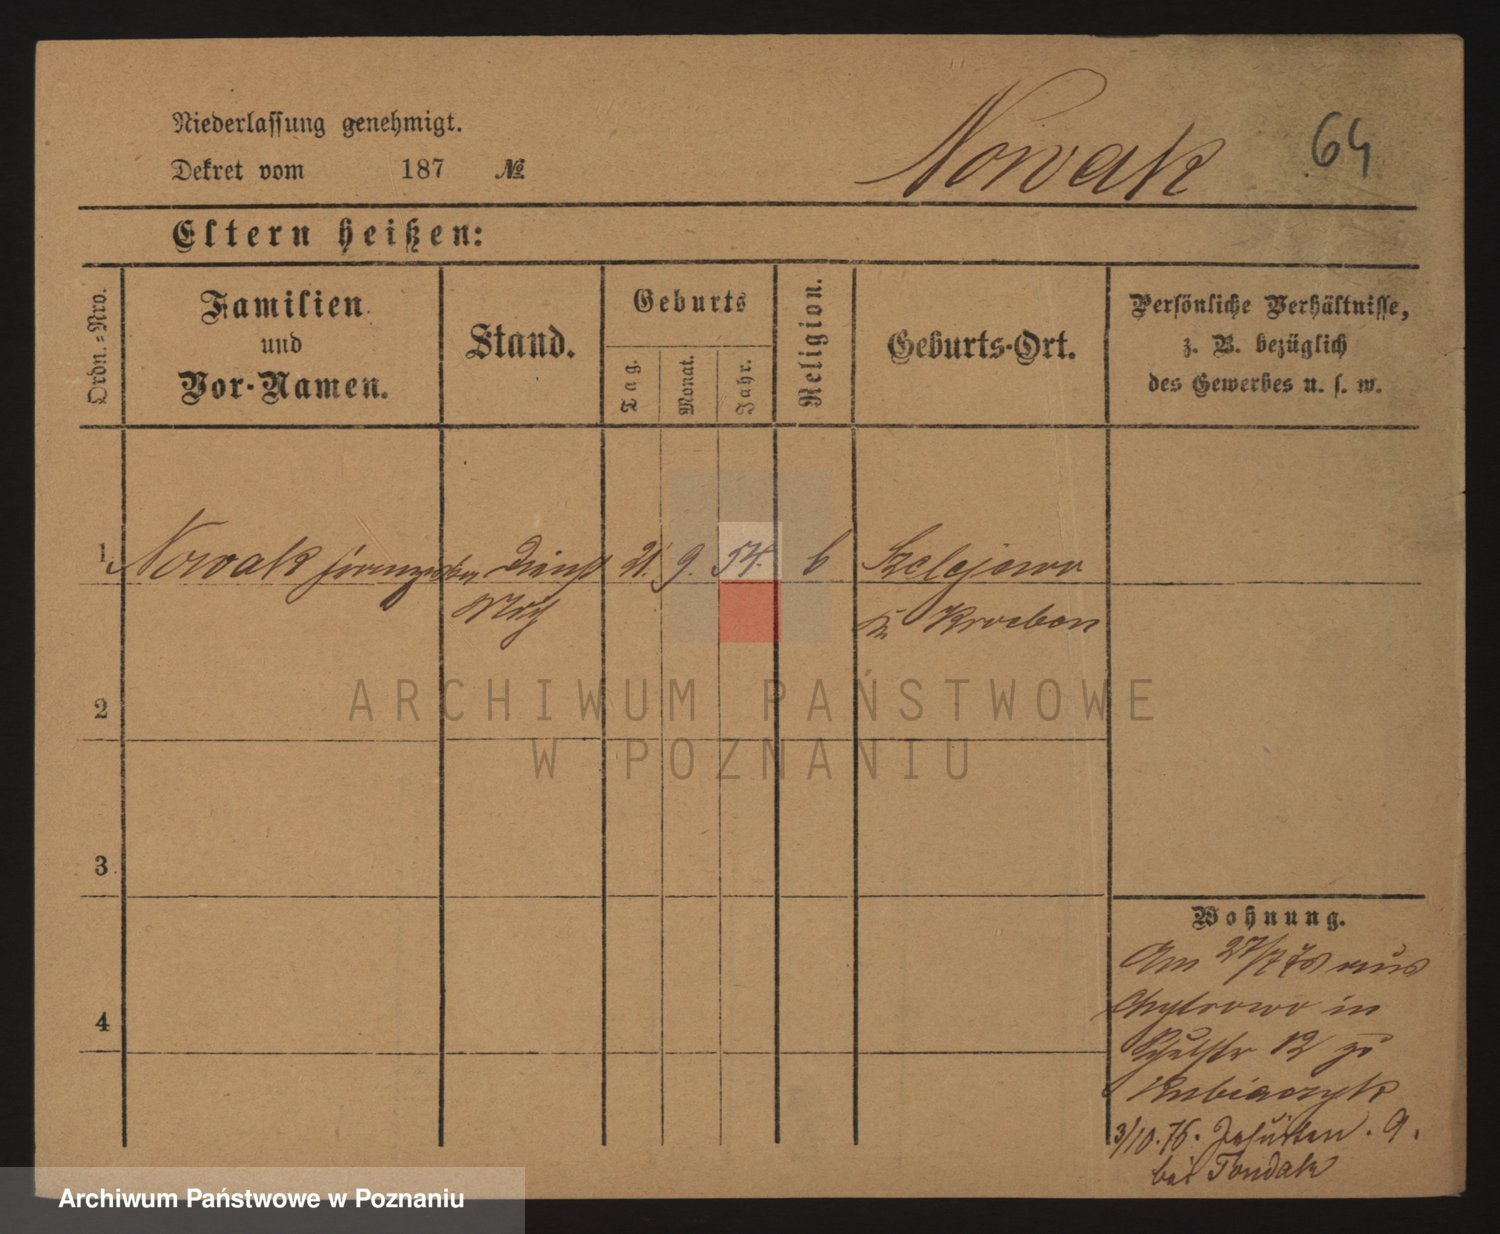 Niederlassung genehmigt.
Dekret vom 187 №
Nowak
64
Eltern heißen:
Ordn.=Nro.
Familien
und
Vor-Namen.
Stand.
Geburts
Tag.
Monat.
Jahr.
Religion.
Geburts-Ort.
Persönliche Verhältnisse,
z. B. bezüglich
des Gewerbes u. s. w.
1
Nowak Dienst 21. 9. 54.
Kroeben
2
ARCHIWUM PAŃSTWOWE
W POZNANIU
3
4
Wohnung.
Am 27/7 aus
in
12 zu
Kubiaczyk
3/10.76. Jesuiten. 9.
bei Tondak
Archiwum Państwowe w Poznaniu